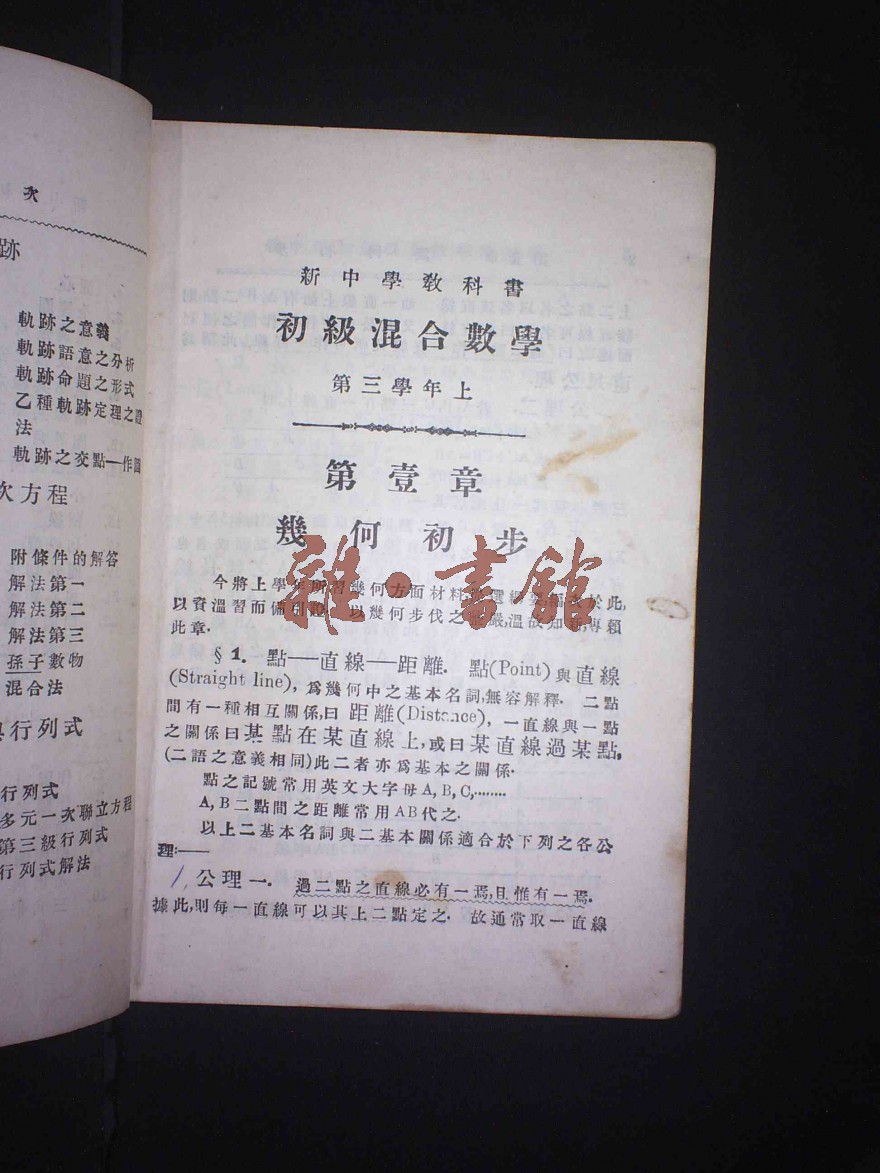 次
跡
軌跡之意義
軌跡語意之分析
軌跡命題之形式
乙種軌跡定理之證
法
軌跡之交點—作圖
次方程
附條件的解答
解法第一
解法第二
解法第三
孫子數物
混合法
行列式
行列式
多元一次聯立方程
第三級行列式
行列式解法
新中學敎科書
初級混合數學
第三學年上
第壹章
幾何初步
雜·書館
今將上學年所習幾何方面材料於此,
以資溫習而備引證. 以幾何步伐之嚴,溫故知新,專賴
此章.
§1. 點—直線—距離. 點(Point)與直線
(Straight line),爲幾何中之基本名詞,無容解釋. 二點
間有一種相互關係,曰距離(Distance),一直線與一點
之關係曰某點在某直線上,或曰某直線過某點,
(二語之意義相同)此二者亦爲基本之關係.
點之記號常用英文大字母A, B, C,........
A, B二點間之距離常用AB代之.
以上二基本名詞與二基本關係適合於下列之各公
理:——
公理一. 過二點之直線必有一焉,且惟有一焉.
據此,則每一直線可以其上二點定之. 故通常取一直線